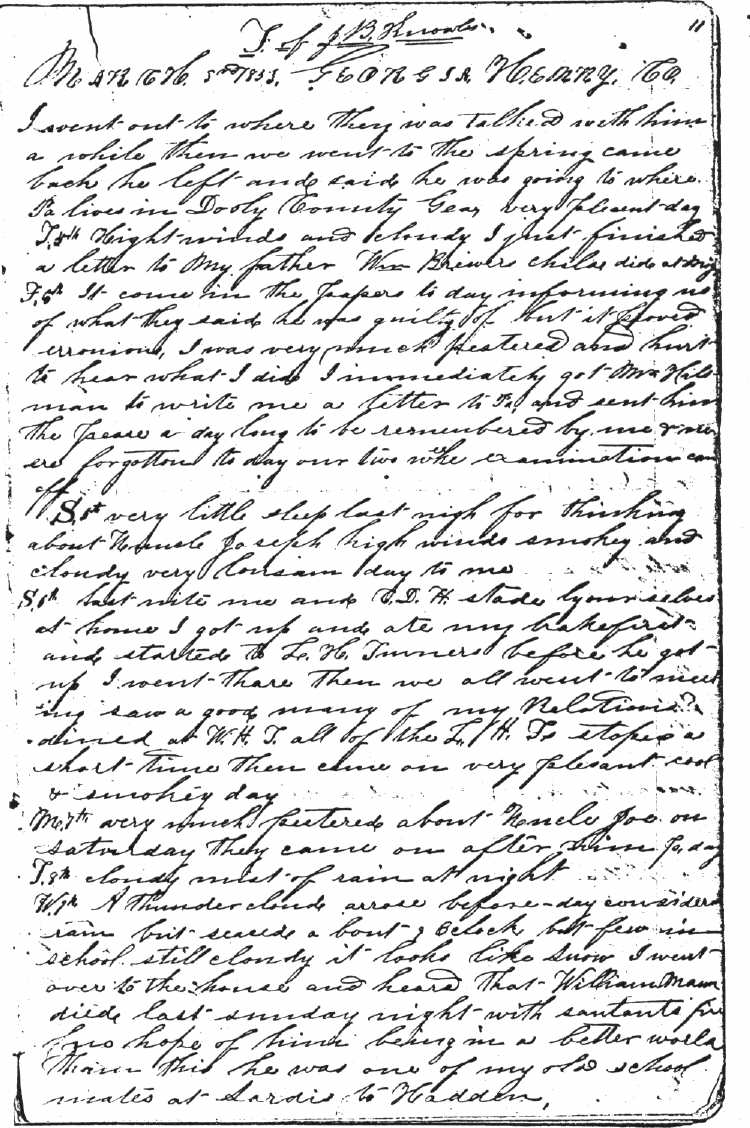 11
T. of J. B. Knowls.
MARCH. 3rd 1853. GEORGIA. HENRY. CO.
I went out to where they was talked with him
a while then we went to the spring came
back he left and said he was going to where
Pa lives in Dooly County Gea, very plesent day
T. 4th Hight winds and cloudy I just finished
a letter to My father Wm Brewers childe dide at
F. It come in the Papers to day informing us
of what they said he was guilty of but it proved
erronious, I was very much pestered and hurt
to hear what I did I immediately got Mr. Hil-
man to write me a letter to Pa and sent him
the Pease a day long to be remembered by me &
forgotton to day our two examination
off
S. 5t very little sleep last nigh for thinking
about Huncle Joseph high winds smokey and
cloudy very lonsam day to me
S. 6th last nite me and C. D. H. stade by our selves
at home I got up and ate my brakefirst
and started to L. H. Turners before he got
up I went thare then we all went to meet
ing saw a good many of my Relations &
dined at W. H. T. all of the L. H. Ts stoped a
short time then came on very plesant cool
& smokey day
M. 7th very much pestered about Huncle Joe on
saturday they came on after him day
T. 8th cloudy mist of rain at night
W. 9th A thunder cloude arrose before-day considera
rain but seased a bout 9 oclock but few in
school still cloudy it looks like snow I went
over to the house and heard that William Mann
died last sunday night with
no hope of him being in a better world
than this he was one of my old school
mates at Sardis to Hadden,